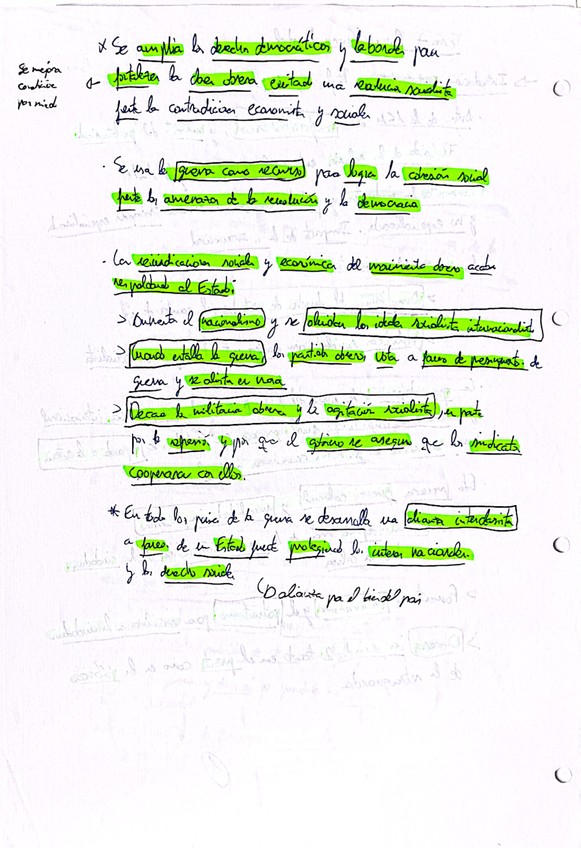 * Se amplia los derechos democráticos y laborales para
Se mejora
condicione
por mied
← fortalecer la clase obrera evitad una revolucion socialista
frente la contradiccion economista y sociales
· Se usa la guerra como recurso para lograr la cohesión social
frente los amenazas de la revolución y la democracia
· Las reivindicaciones sociales y económica del movimiento obrero acaba
respaldando al Estado:
> Aumenta el nacionalismo y se olvidan los ideales socialista internacionalista
> Cuando estalla la guerra, los partidos obreros vota a favor de presupuesto de
guerra y se alista en masa
> Decae la militancia obrera y la agitación socialista, en parte
por la represión y por que el gobierno se asegura que los sindicatos
cooperaran con ellos.
* En todo los paises de la guerra se desarrolla una alianza interclasista
a favor de un Estado fuerte protegiendo los interes nacionales
y los derechos sociales
↳ alianza por el bien del pais